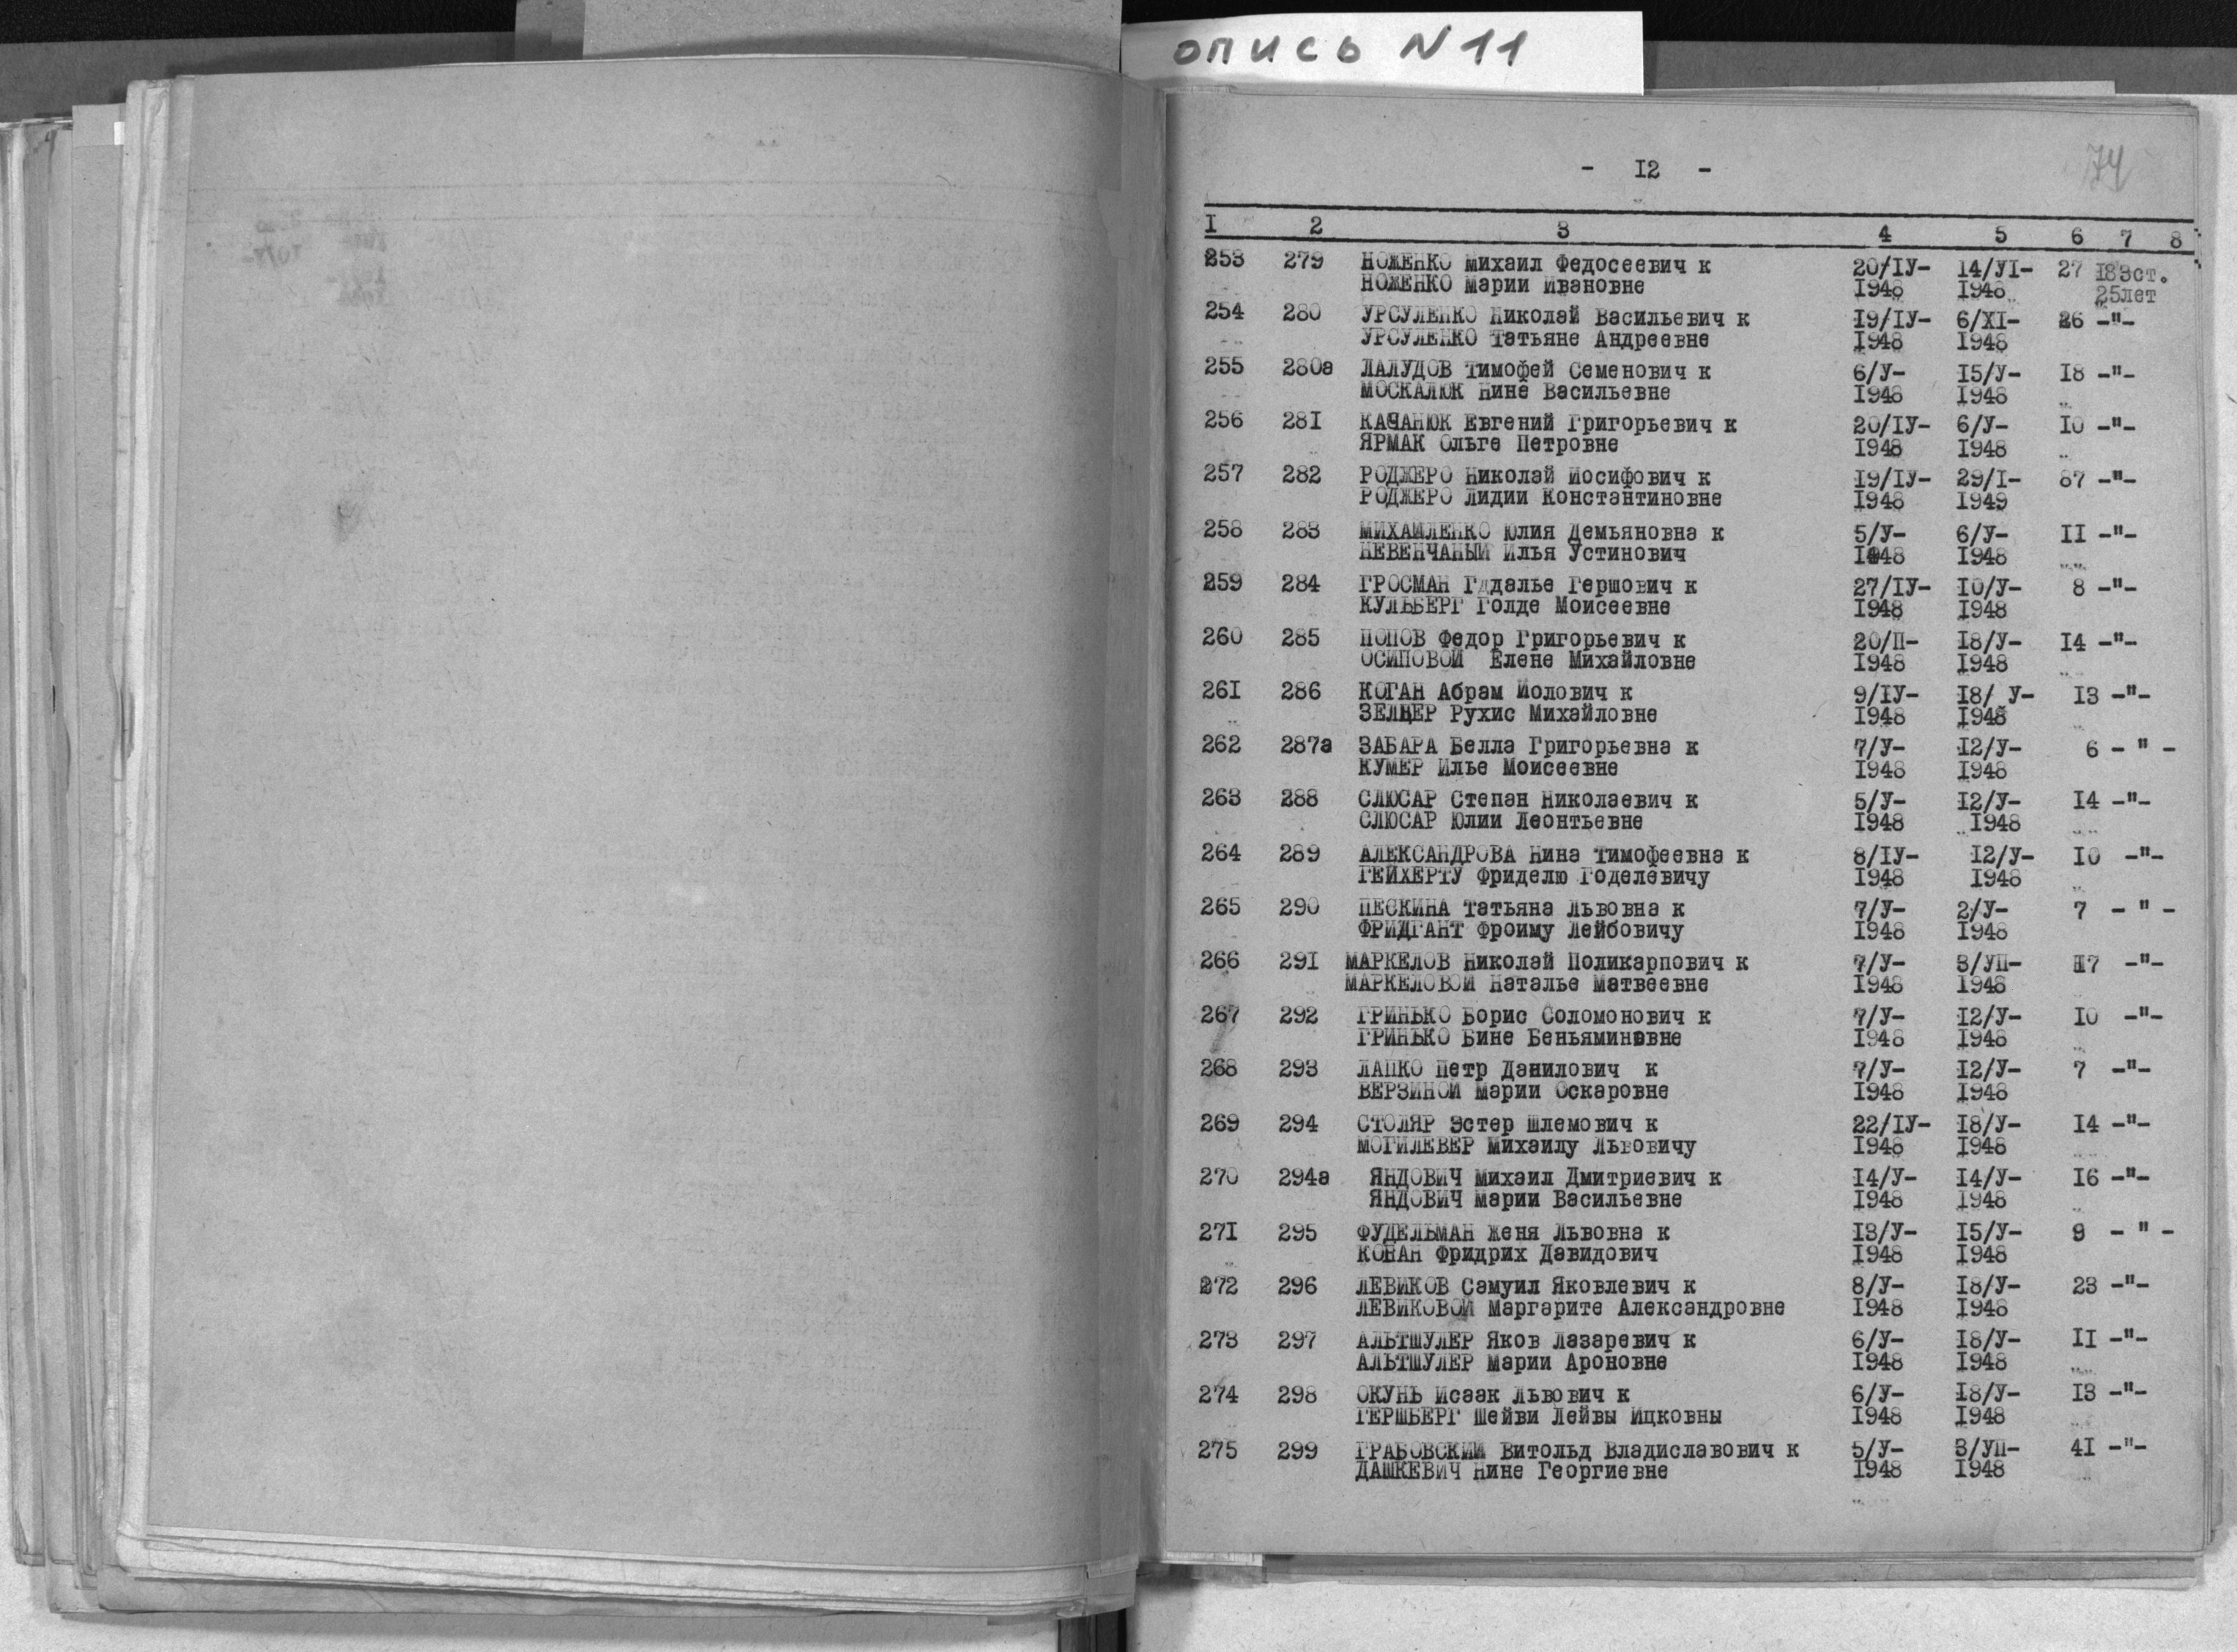 опись N 11
74
- I2 -
I 2 3 4 5 6 7 8
253 279 НОЖЕНКО Михаил Федосеевич к 20/IУ- 14/УI- 27 183ст.
НОЖЕНКО Марии Ивановне I948 I948 25лет
254 280 УРСУЛЕНКО Николай Васильевич к I9/IУ- 6/XI- 26 -"-
УРСУЛЕНКО Татьяне Андреевне I948 I948
255 280а ЛАЛУДОВ Тимофей Семенович к 6/У- I5/У- I8 -"-
МОСКАЛЮК Нине Васильевне I948 I948
256 28I КАЧАНЮК Евгений Григорьевич к 20/IУ- 6/У- I0 -"-
ЯРМАК Ольге Петровне I948 I948
257 282 РОДЖЕРО Николай Иосифович к I9/IУ- 29/I- 87 -"-
РОДЖЕРО Лидии Константиновне I948 I949
258 283 МИХАЙЛЕНКО Юлия Демьяновна к 5/У- 6/У- II -"-
НЕВЕНЧАНЫЙ Илья Устинович I948 I948
259 284 ГРОСМАН Гддалье Гершович к 27/IУ- I0/У- 8 -"-
КУЛЬБЕРГ Голде Моисеевне I948 I948
260 285 ПОПОВ Федор Григорьевич к 20/П- I8/У- I4 -"-
ОСИПОВОЙ Елене Михайловне I948 I948
26I 286 КОГАН Абрам Иолович к 9/IУ- I8/ У- I3 -"-
ЗЕЛЦЕР Рухис Михайловне I948 I948
262 287а ЗАБАРА Белла Григорьевна к 7/У- I2/У- 6 - " -
КУМЕР Илье Моисеевне I948 I948
263 288 СЛЮСАР Степан Николаевич к 5/У- I2/У- I4 -"-
СЛЮСАР Юлии Леонтьевне I948 I948
264 289 АЛЕКСАНДРОВА Нина Тимофеевна к 8/IУ- I2/У- I0 -"-
ГЕЙХЕРТУ Фриделю Годелевичу I948 I948
265 290 ПЕСКИНА Татьяна Львовна к 7/У- 2/У- 7 - " -
ФРИДГАНТ Фроиму Лейбовичу I948 I948
266 29I МАРКЕЛОВ Николай Поликарпович к 7/У- 3/УП- -"-
МАРКЕЛОВОЙ Наталье Матвеевне I948 I948
267 292 ГРИНЬКО Борис Соломонович к 7/У- I2/У- I0 -"-
ГРИНЬКО Бине Беньяминовне I948 I948
268 293 ЛАПКО Петр Данилович к 7/У- I2/У- 7 -"-
ВЕРЗИНОЙ Марии Оскаровне I948 I948
269 294 СТОЛЯР Эстер Шлемович к 22/IУ- I8/У- I4 -"-
МОГИЛЕВЕР Михаилу Львовичу I948 I948
270 294а ЯНДОВИЧ Михаил Дмитриевич к I4/У- I4/У- I6 -"-
ЯНДОВИЧ Марии Васильевне I948 I948
27I 295 ФУДЕЛЬМАН Женя Львовна к I3/У- I5/У- 9 - " -
Фридрих Давидович I948 I948
272 296 ЛЕВИКОВ Самуил Яковлевич к 8/У- I8/У- 23 -"-
ЛЕВИКОВОЙ Маргарите Александровне I948 I948
273 297 АЛЬТШУЛЕР Яков Лазаревич к 6/У- I8/У- II -"-
АЛЬТШУЛЕР Марии Ароновне I948 I948
274 298 ОКУНЬ Исаак Львович к 6/У- I8/У- I3 -"-
ГЕРШБЕРГ Шейви Лейвы Ицковны I948 I948
275 299 ГРАБОВСКИЙ Витольд Владиславович к 5/У- 3/УП- 4I -"-
ДАШКЕВИЧ Нине Георгиевне I948 I948